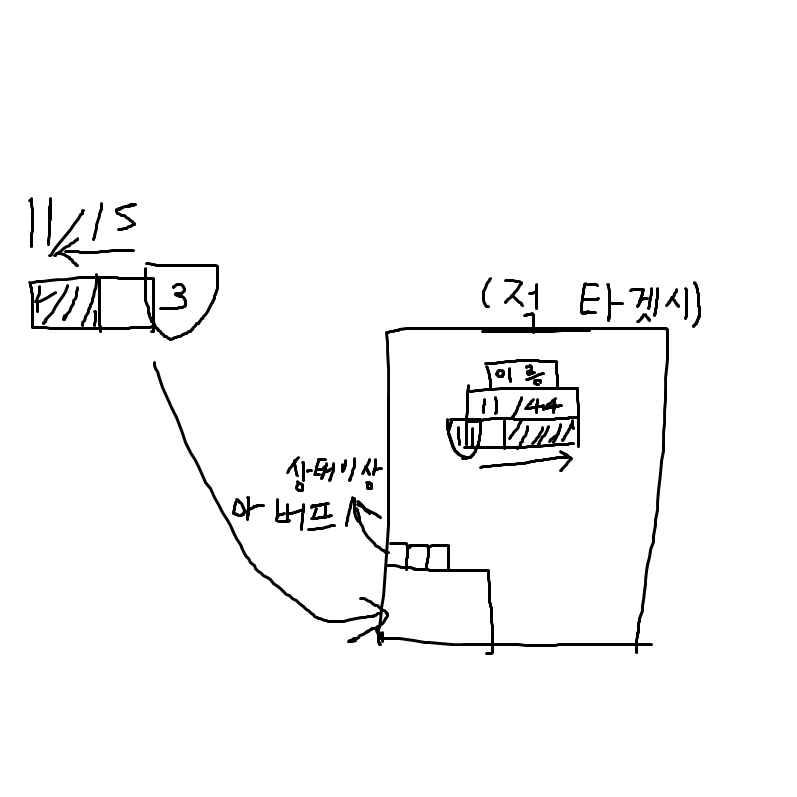 11/15
3
(적 타겟시)
이름
11/44
11
상태이상
아 버프